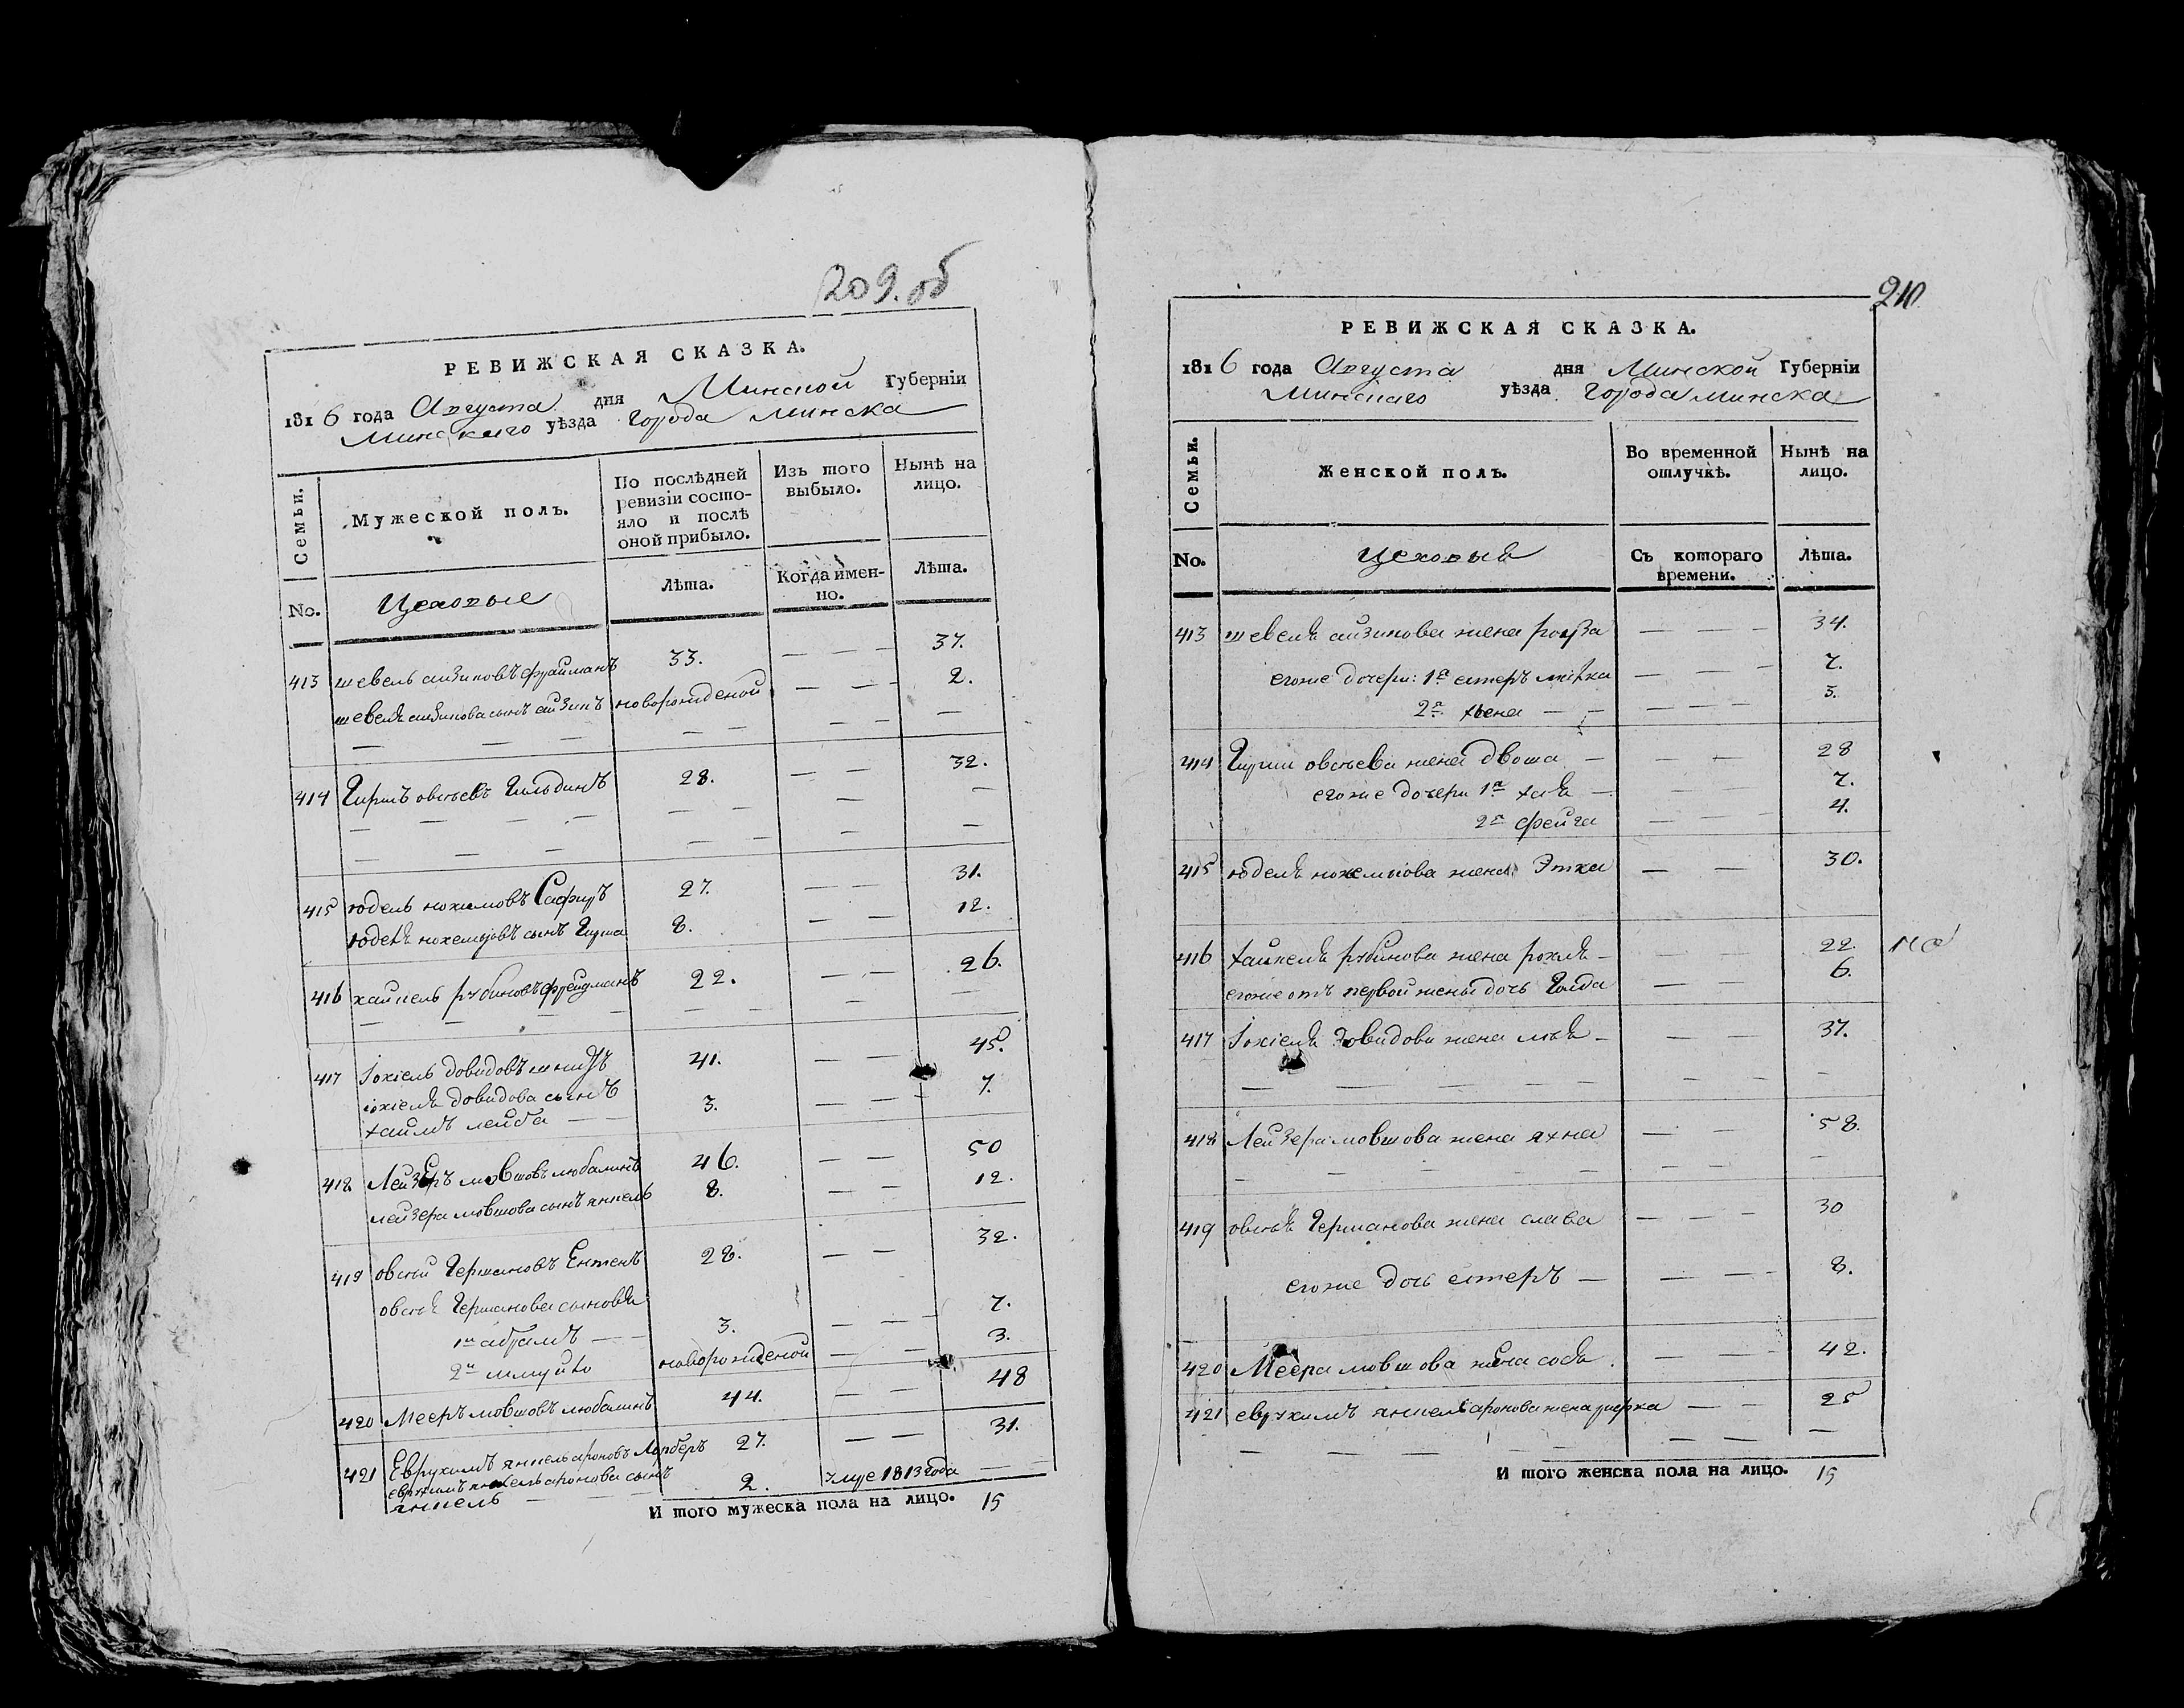 209. об
РЕВИЖСКАЯ СКАЗКА.
1816 года Августа дня Минской Губернiи
Минскаго уѣзда Города Минска
Семьи.
Мужеской полъ.
По послѣдней ревизiи состояло и послѣ оной прибыло.
Изъ того выбыло.
Нынѣ на лицо.
No. Цеховые Лѣта. Когда имен-но. Лѣта.
413 шевель айзиковъ фрайманъ 33. — — — 37.
шевеля айзикова сынъ айзикъ новорожденой — — — 2.
414 Гиршъ овсѣевъ Гильдинъ 28. — — 32.
415 юдель нохимовъ Сафиръ 27. — — 31.
юделя нохемовъ сынъ Гирша 8. — — 12.
416 хайкель рубиновъ фрейдманъ 22. — — 26.
417 Iохiель довидовъ шнидъ 41. — — 45.
iохiеля довидова сынъ
хаимъ лейба — 3. — — — 7.
418 Лейзеръ мовшовъ любалинъ 46. — — 50
лейзера мовшова сынъ янкель 8. — — 12.
419 овсѣй Германовъ Ентенъ 28. — — 32.
овсѣя Германова сыновья
1й абрамъ — — 3. — — — 7.
2й новорожденой — — 3.
420 Мееръ мовшовъ любалинъ 44. — — 48
421 Еврухимъ янкель ароновъ 27. — — 31.
еврухимъ янкель аронова сынъ
янкель — — 2. умре 1813 года — —
И того мужеска пола на лицо. 15
210
РЕВИЖСКАЯ СКАЗКА.
1816 года Августа дня Минской Губернiи
Минскаго уѣзда Города Минска
Семьи.
Женской полъ.
Во временной отлучкѣ.
Нынѣ на лицо.
No. Цеховыя Съ котораго времени. Лѣта.
413 шевеля айзикова жена роуза — — — 34.
егоже дочери: 1я естеръ — — — 7.
2я хьена — — — — — 3.
414 Гирши овсѣева жена двоша — — — 28
егоже дочери 1я хая — — — 7.
2я фейга — — — 4.
415 юделя нохемыова жена Этка — — 30.
416 хайкеля рубинова жена рохля — — — 22.
егоже отъ первой жены дочь Голда — — 6.
417 Iохiеля довидова жена — — — 37.
418 Лейзера мовшова жена яхна — — 58.
419 овсѣя Германова жена слава — — — 30
егоже дочь естеръ — — — — 8.
420 Меера мовшова жена собя. — — — 42.
421 еврухимъ янкеля аронова жена — — 25
И того женска пола на лицо. 15